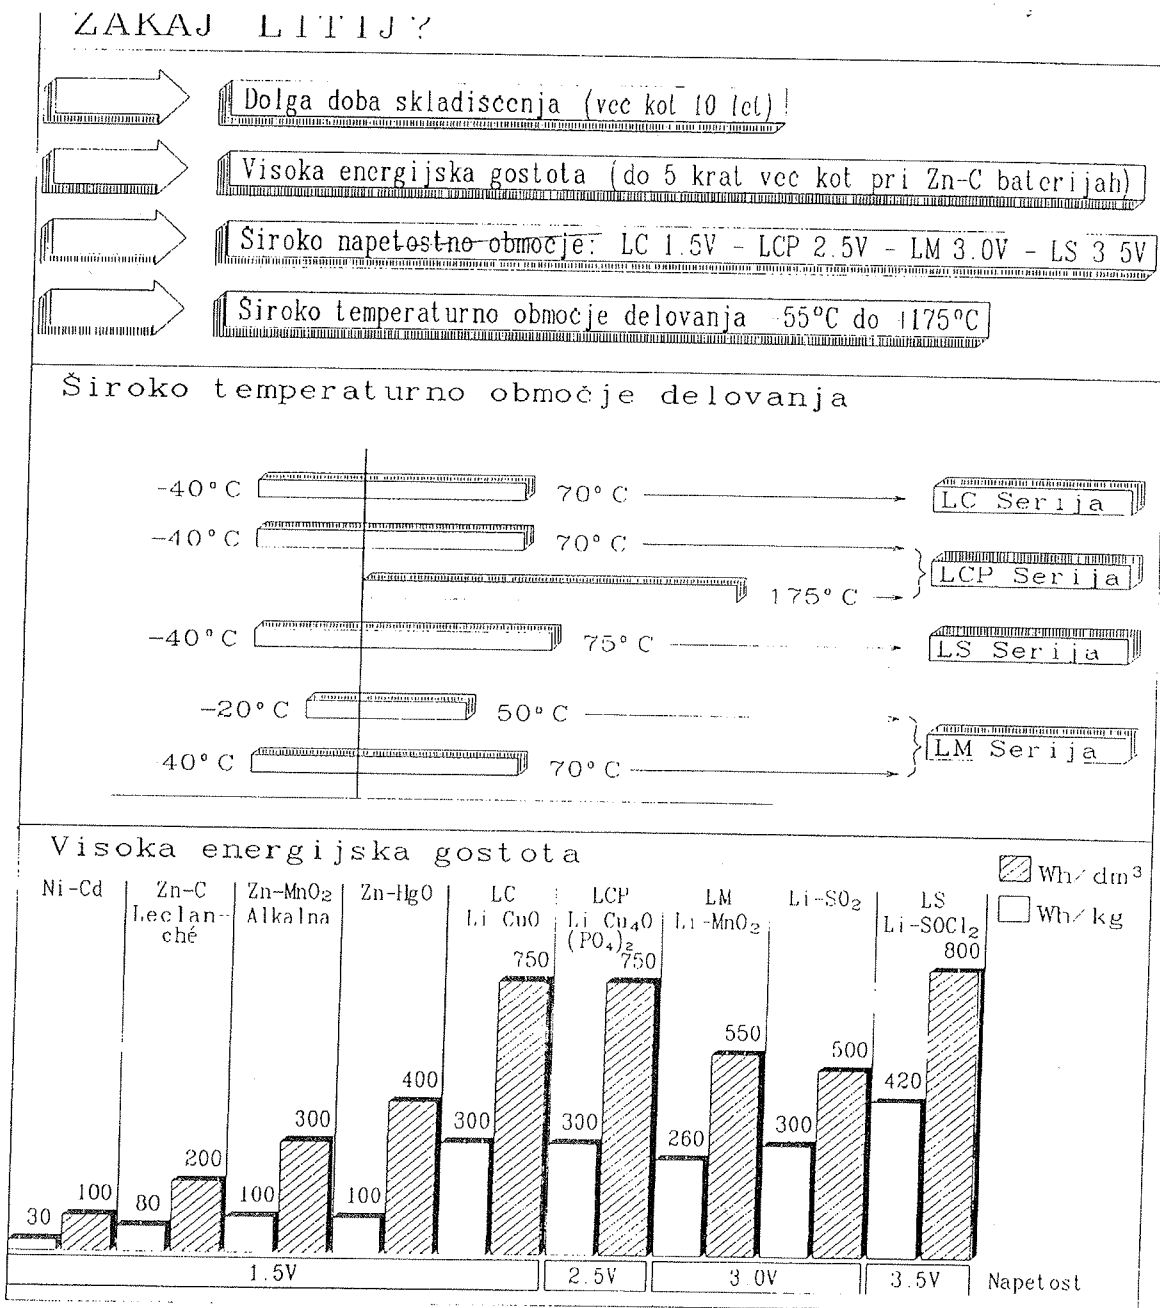 ZAKAJ LITIJ?
Dolga doba skladiščenja (več kot 10 let)
Visoka energijska gostota (do 5 krat več kot pri Zn-C baterijah)
Široko napetostno območje: LC 1.5V - LCP 2.5V - LM 3.0V - LS 3 5V
Široko temperaturno območje delovanja -55°C do +175°C
Široko temperaturno območje delovanja
-40°C 70°C LC Serija
-40°C 70°C
LCP Serija
175°C
-40°C 75°C LS Serija
-20°C 50°C
LM Serija
40°C 70°C
Visoka energijska gostota
Wh/dm³
Wh/kg
Ni-Cd
Zn-C
Leclan-
ché
Zn-MnO₂
Alkalna
Zn-HgO
LC
Li CuO
LCP
Li Cu₄O
(PO₄)₂
LM
Li-MnO₂
Li-SO₂
LS
Li-SOCl₂
30 100 80 200 100 300 100 400 300 750 300 750 260 550 300 500 420 800
1.5V 2.5V 3.0V 3.5V Napetost